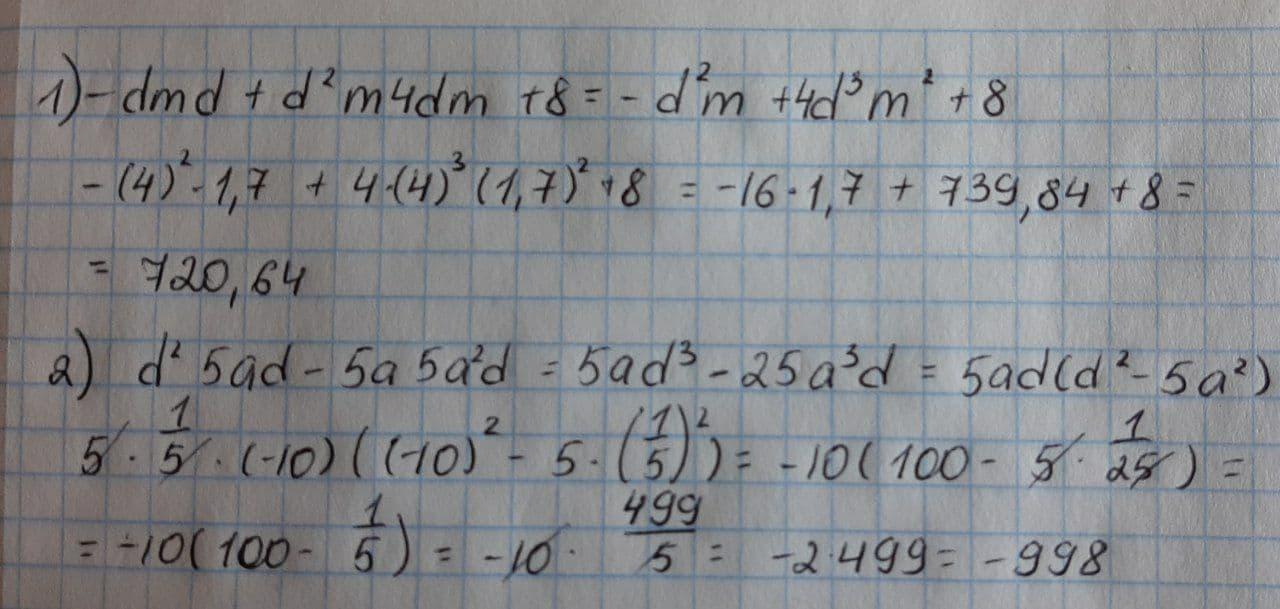 1) - dmd + d² m4dm + 8 = - d²m + 4d³m² + 8
- (4)² · 1,7 + 4·(4)³ (1,7)² + 8 = -16 · 1,7 + 739,84 + 8 =
= 720,64
2) d² 5ad - 5a 5a²d = 5ad³ - 25a³d = 5ad(d² - 5a²)
5 · 1/5 · (-10) ((-10)² - 5 · (1/5)²) = -10(100 - 5 · 1/25) =
= -10(100 - 1/5) = -10 · 499/5 = -2·499 = -998